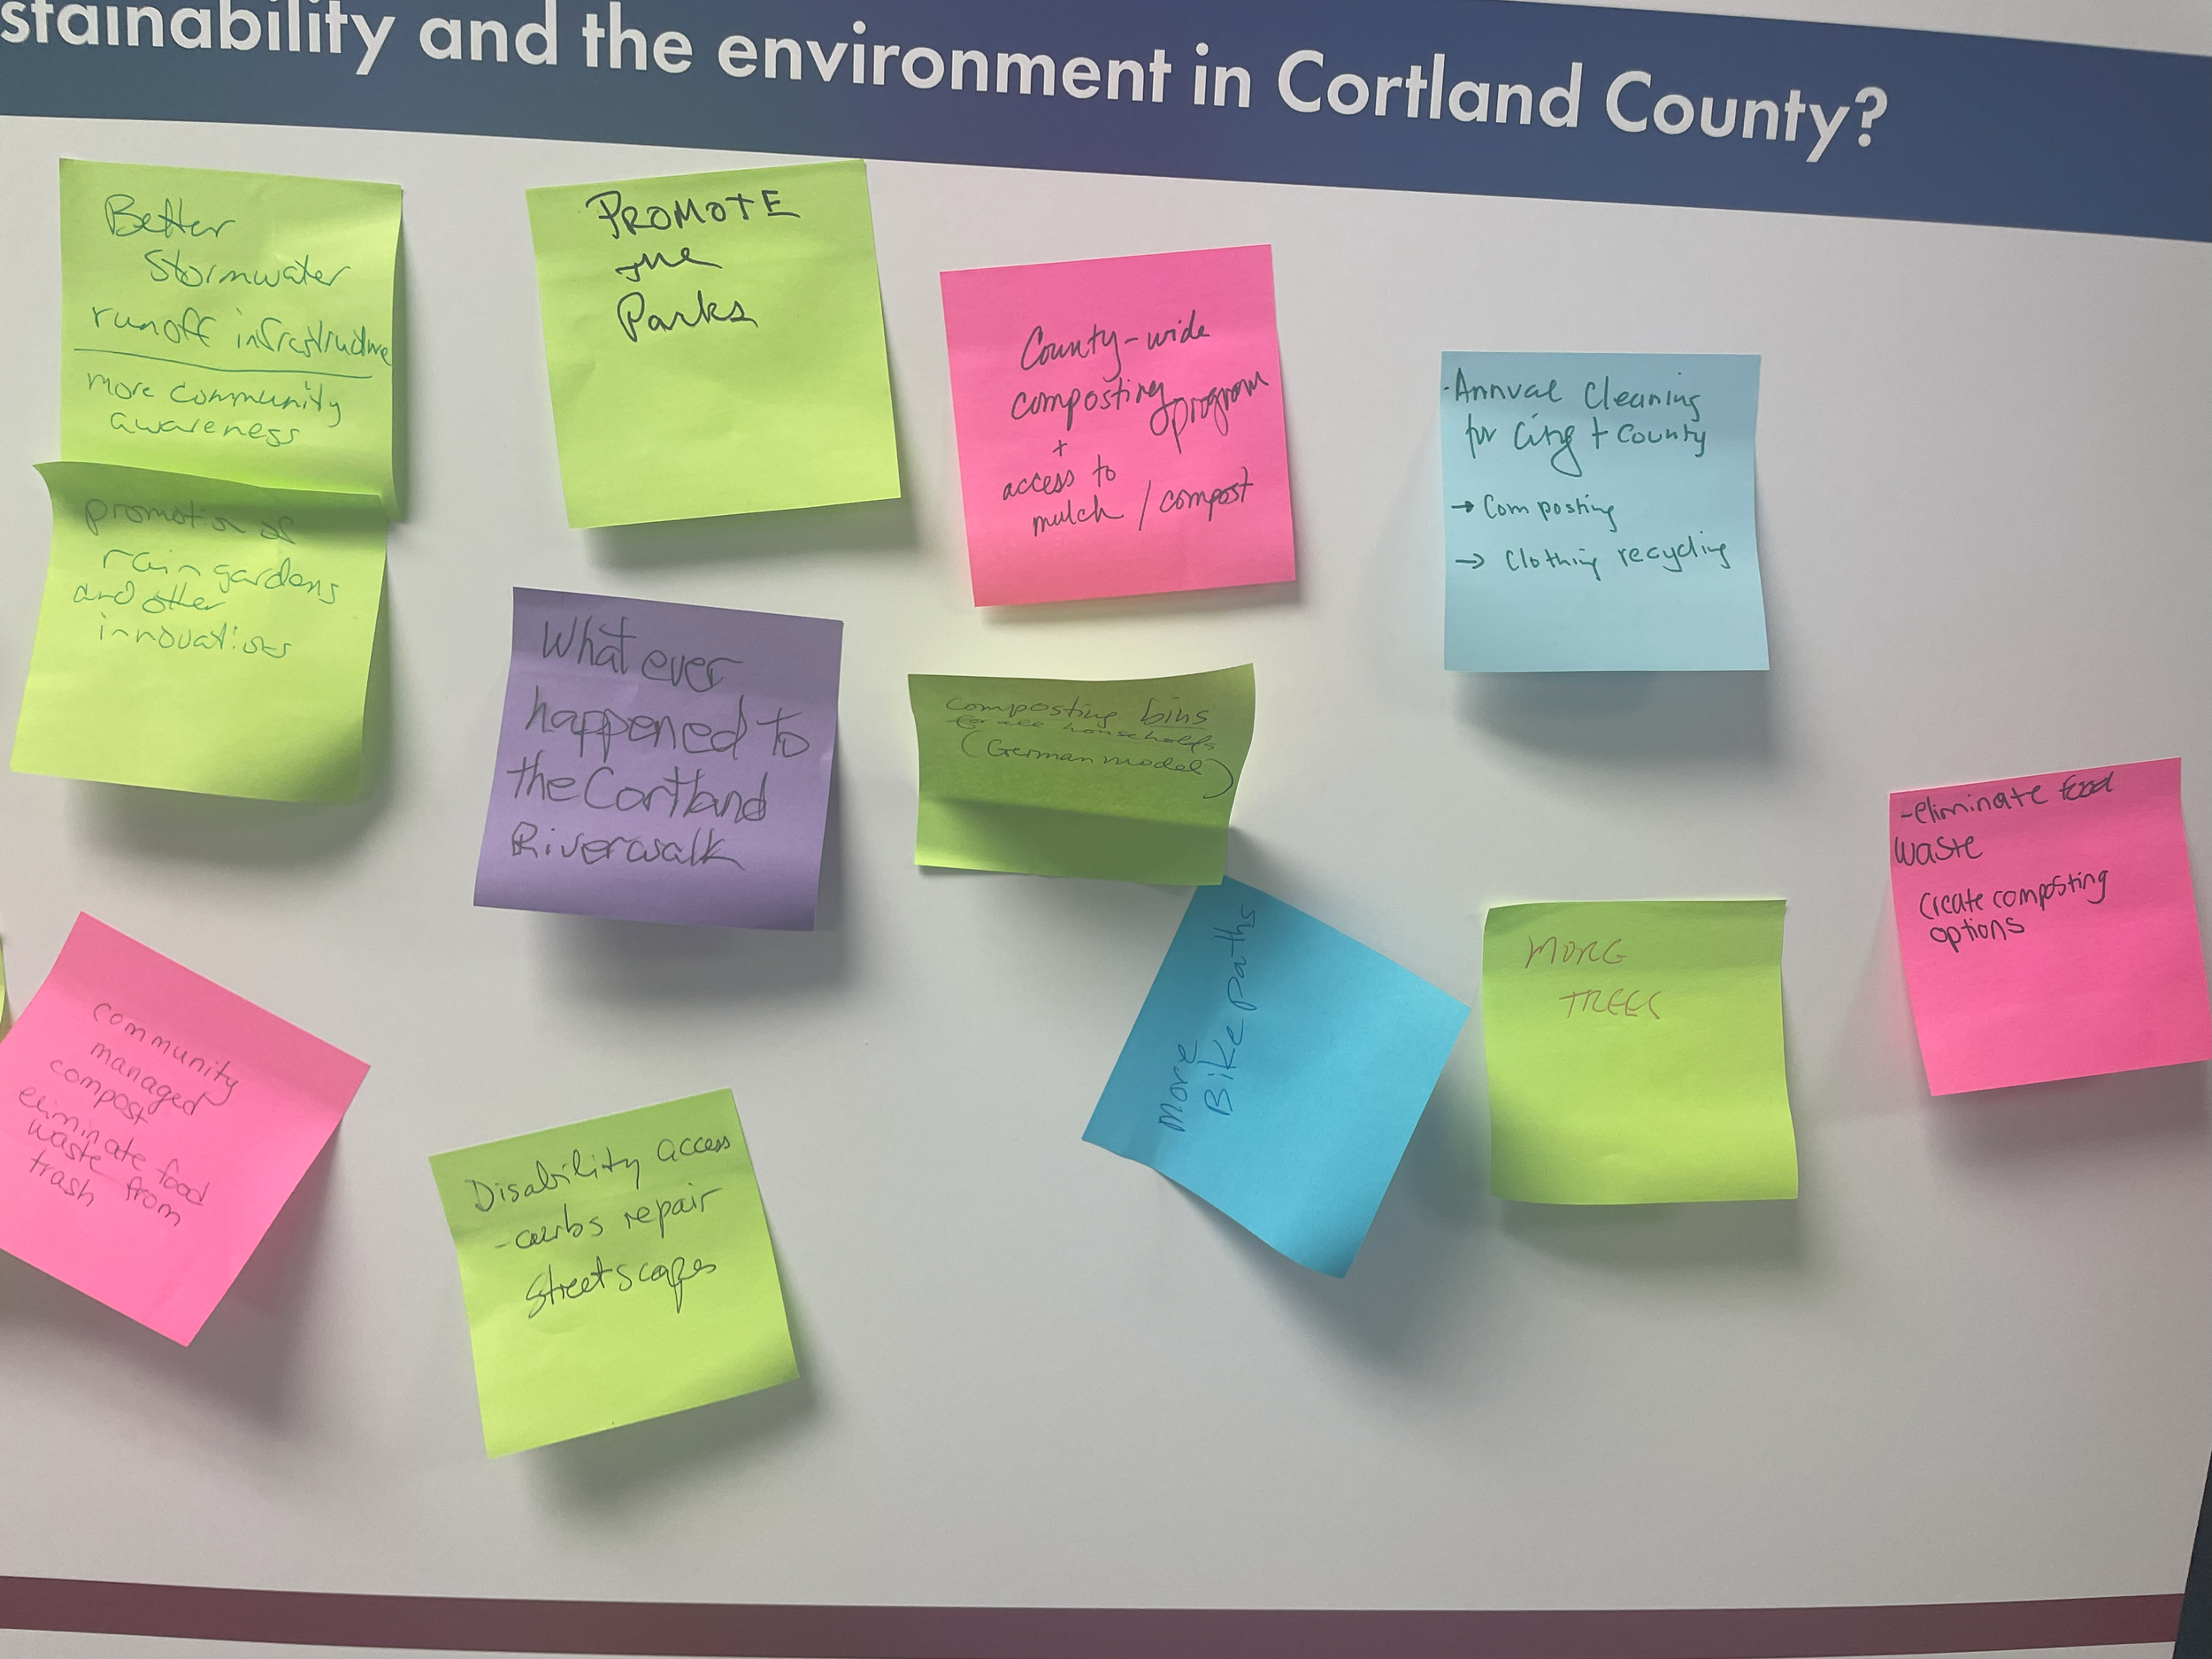 stainability and the environment in Cortland County?
Better
Stormwater
runoff infrastructure
more community
awareness
promotion of
rain gardens
and other
innovations
PROMOTE
the
Parks
County-wide
composting program
+
access to
mulch / compost
-Annual Cleaning
for City + County
→ Composting
→ Clothing recycling
What ever
happened to
the Cortland
Riverwalk
composting bins
for all households
(German model)
-eliminate food
waste
Create composting
options
More
Bike paths
MORE
TREES
community
managed
compost
eliminate food
waste from
trash
Disability access
-curbs repair
Streetscapes